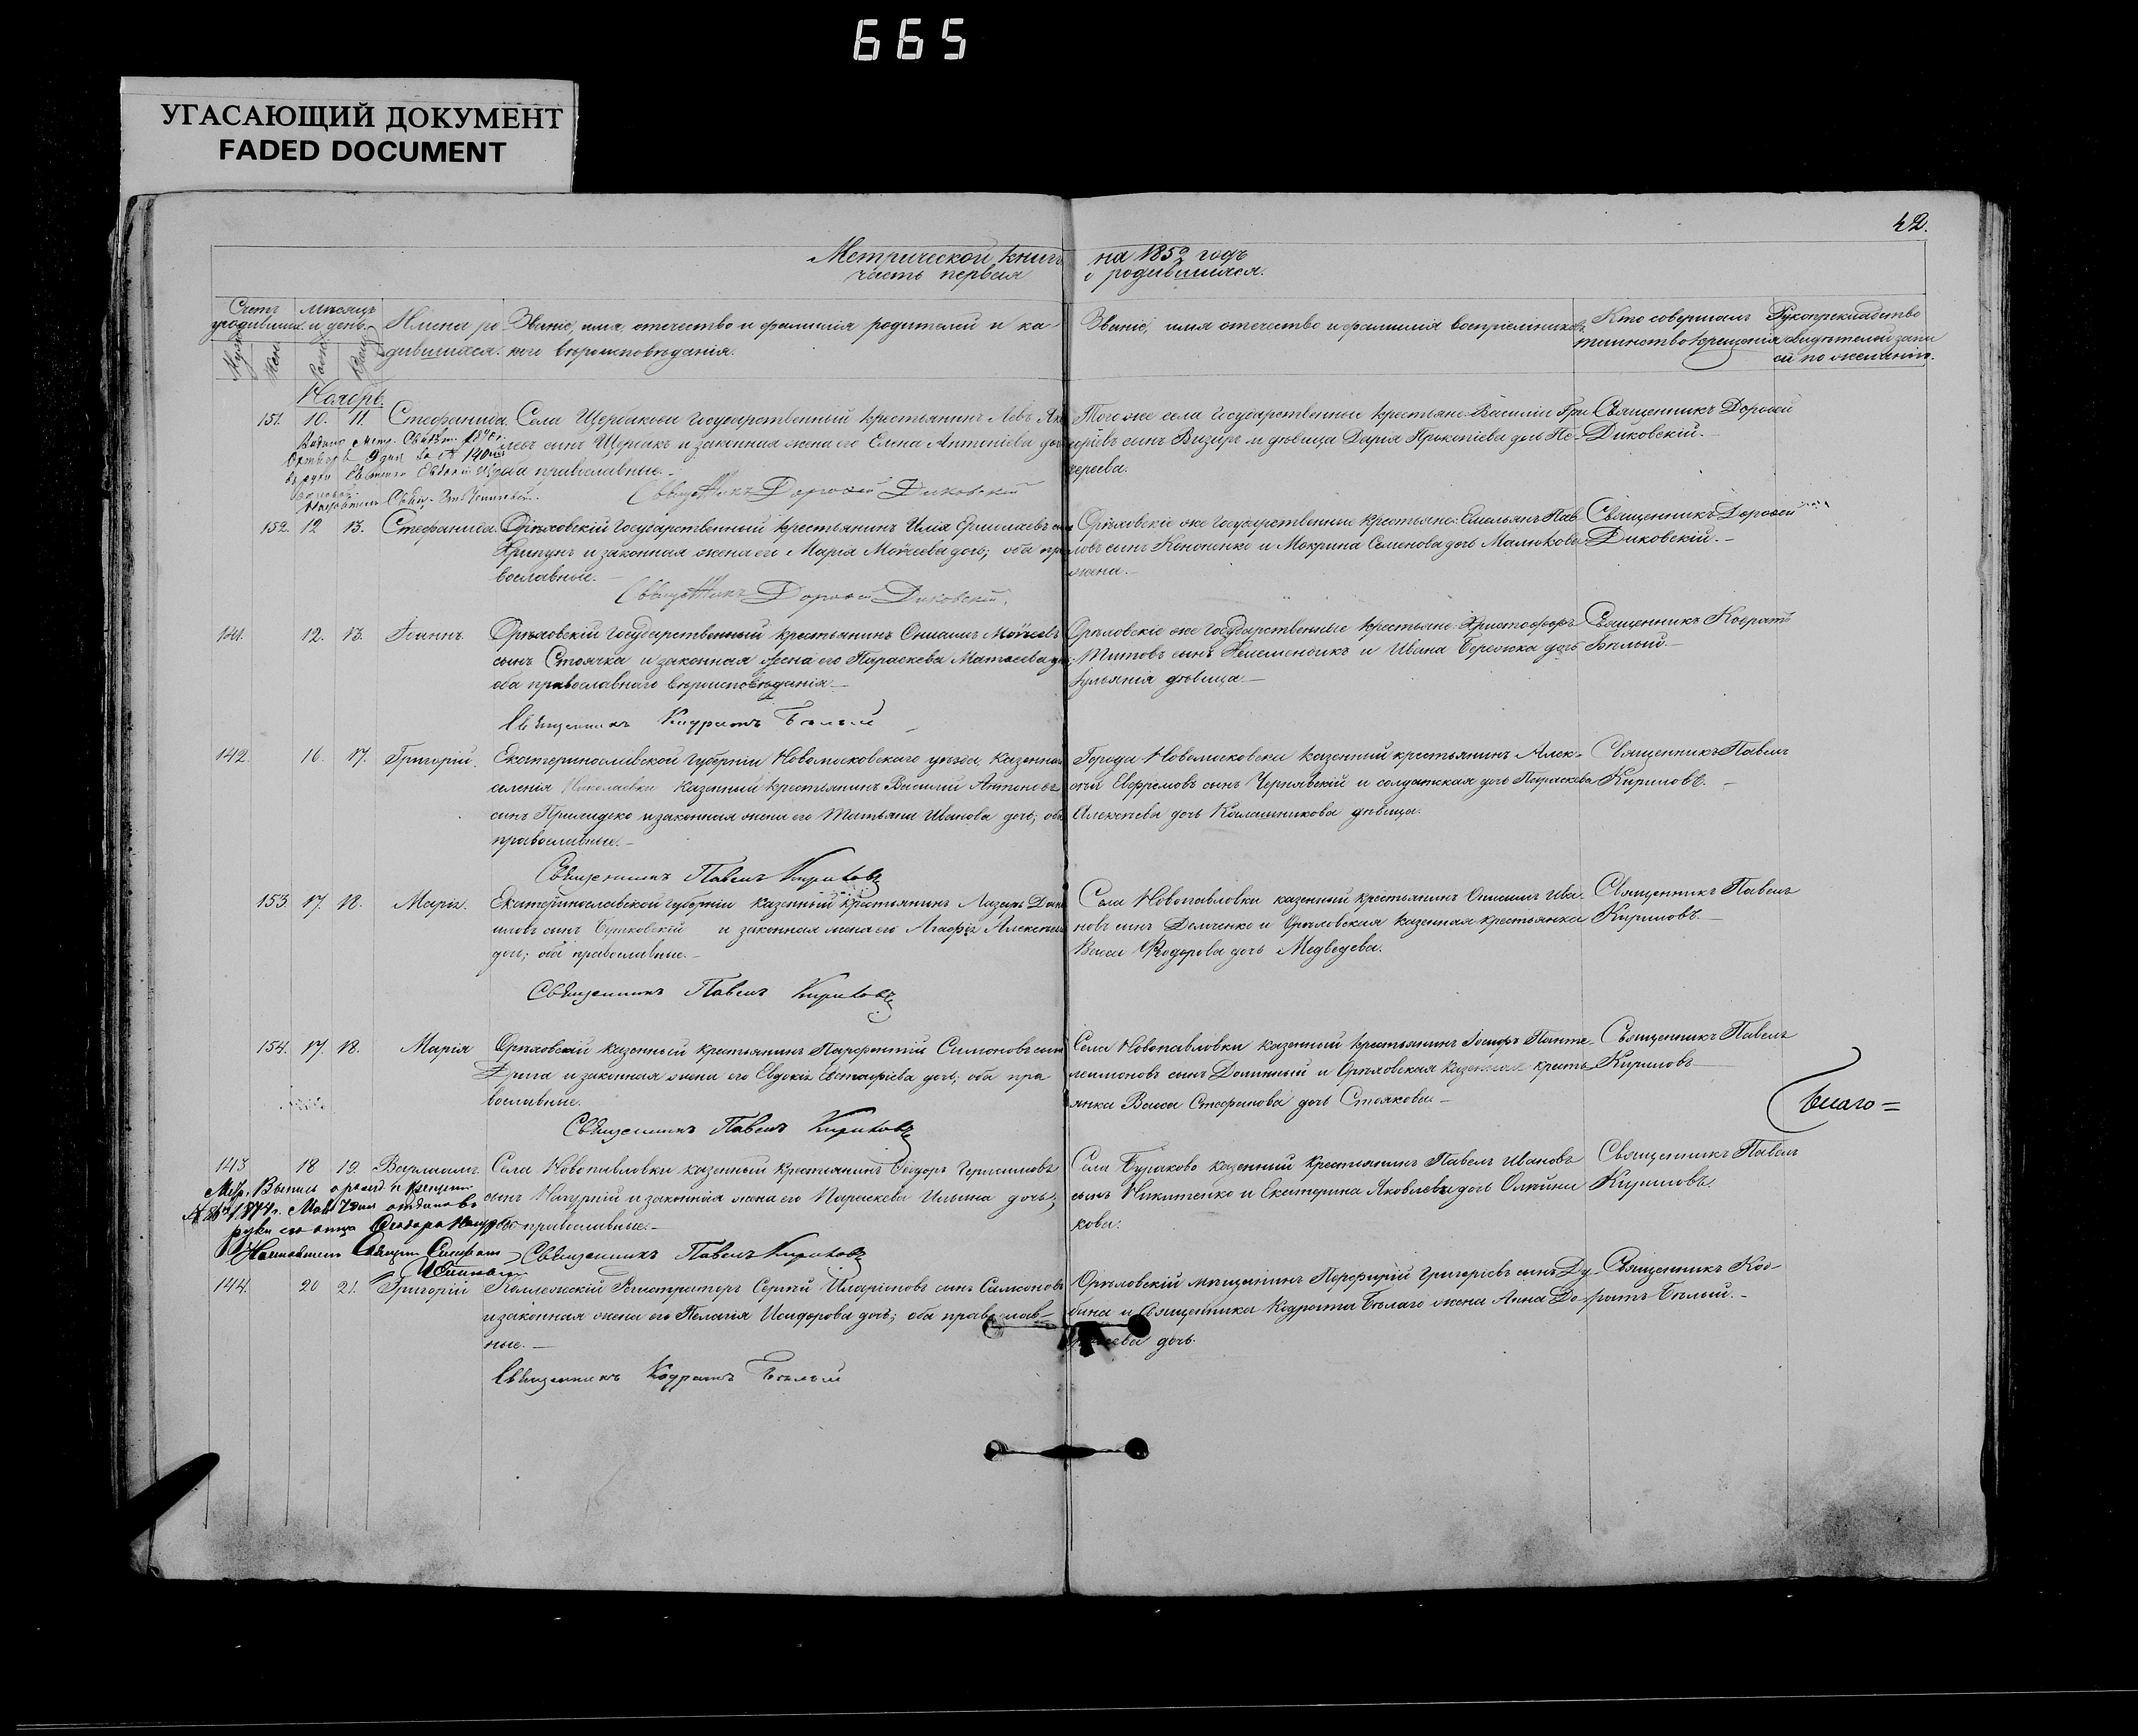 665
УГАСАЮЩИЙ ДОКУМЕНТ
FADED DOCUMENT
42.
Метрической книги на 1852 годъ
часть первая о родившихся.
Счетъ родившихся. Мѣсяцъ и день. Имена родившихся. Званіе, имя, отечество и фамилія родителей и какого вѣроисповѣданія.
Званіе, имя отечество и фамилія воспріемниковъ. Кто совершалъ таинство крещенія Рукоприкладство свидѣтелей записи по желанію.
Муж. Жен. Рожд. Крещ.
Ноябрь.
151. 10. 11. Стефанида. Села Щербакова Государственный крестьянинъ Левъ
сынъ Щербакъ и законная жена его Елена Антоніева дочь
оба православные.
Священникъ Дорофей Диковскій
Того же села Государственные крестьяне: Василій Гри
горіевъ сынъ Визиръ и дѣвица Дарія Прокопіева дочь
Священникъ Дорофей
Диковскій.
152. 12 13. Стефанида. Орѣховскій Государственный крестьянинъ Илія сынъ
Хрипунъ и законная жена его Марія Мойсеева дочь; оба пра
вославные.
Священникъ Дорофей Диковскій.
Орѣховскіе же Государственные крестьяне: Емельянъ Пав
ловъ сынъ Кононенко и Мокрина Семенова дочь Малюкова
жена.
Священникъ Дорофей
Диковскій.
141. 12. 13. Іоаннъ. Орѣховскій Государственный крестьянинъ Мойсеевъ
сынъ Стоячка и законная жена его Параскева Матѳеева дочь;
оба православнаго вѣроисповѣданія.
Священникъ Кодратъ Бѣлый
Орѣховскіе же Государственные крестьяне: Христофоръ
Титовъ сынъ и Ивана Бережка дочь
Іульянія дѣвица.
Священникъ Кодратъ
Бѣлый.
142. 16. 17. Григорій. Екатеринославской Губерніи Новомосковскаго уѣзда казеннаго
селенія Николаевки казенный крестьянинъ Василій Антоновъ
сынъ и законная жена его Татьяна Иванова дочь; оба
православные.
Священникъ Павелъ Кириловъ
Города Новомосковска казенный крестьянинъ Алек-
сѣй Евфремовъ сынъ Чернявскій и солдатская дочь Параскева
Алексѣева дочь Калашникова дѣвица.
Священникъ Павелъ
Кириловъ.
153. 17. 18. Марія. Екатеринославской губерніи казенный крестьянинъ Лазарь Дани
иловъ сынъ и законная жена его Агафія Алексѣева
дочь; оба православные.
Священникъ Павелъ Кириловъ
Села Новопавловки казенный крестьянинъ Онисимъ Ива-
новъ сынъ Демченко и Орѣховская казенная крестьянка
Васса Ѳеодорова дочь Медведева.
Священникъ Павелъ
Кириловъ.
154. 17. 18. Марія Орѣховскій казенный крестьянинъ Парфентій Симоновъ сынъ
Дрига и законная жена его Евдокія Евстафіева дочь; оба пра
вославные.
Священникъ Павелъ Кириловъ
Села Новопавловки казенный крестьянинъ Іосифъ Панте-
леимоновъ сынъ и Орѣховская казенная кресть-
янка Васса Стефанова дочь Стоякова.
Священникъ Павелъ
Кириловъ
Бѣлаго =
143 18 19. Варлаамъ. Села Новопавловки казенный крестьянинъ Ѳеодоръ Герасимовъ
сынъ и законная жена его Параскева Ильина дочь;
оба православные.
Священникъ Павелъ Кириловъ
Села Бураково казенный крестьянинъ Павелъ Ивановъ
сынъ Никитенко и Екатерина Яковлева дочь Олейни
кова.
Священникъ Павелъ
Кириловъ.
144. 20 21. Григорій Коллежскій Регистраторъ Сергѣй Иларіоновъ сынъ Самсоновъ
и законная жена его Пелагія Исидорова дочь; оба православ-
ные.
Священникъ Кодратъ Бѣлый
Орѣховскій мѣщанинъ Порфирій Григоріевъ сынъ Ду-
бина и Священника Кодрата Бѣлаго жена Анна
дочь.
Священникъ Код-
ратъ Бѣлый.